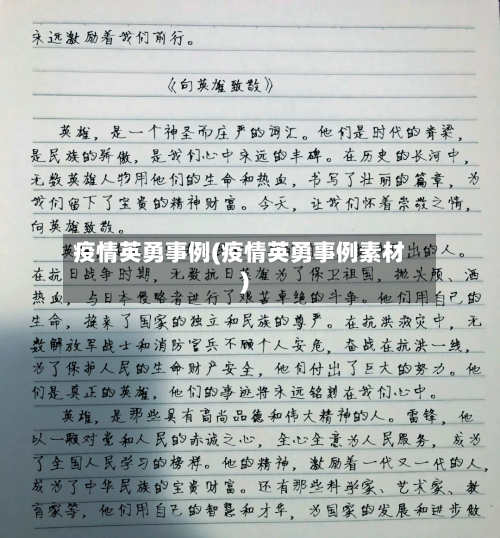 永远激励着我们前行。
《向英雄致敬》
英雄，是一个神圣而庄严的词汇。他们是时代的脊梁，
是民族的骄傲，是我们心中永远的丰碑。在历史的长河中，
无数英雄人物用他们的生命和热血，书写了壮丽的篇章，为
我们留下了宝贵的精神财富。今天，让我们怀着崇敬之情，
向英雄致敬。
疫情英勇事例(疫情英勇事例素材
)
英 出的人。
在抗日战争时期，无数抗日英雄为了保卫祖国，抛头颅、洒
热血，与日本侵略者进行了艰苦卓绝的斗争。他们用自己的
生命，换来了国家的独立和民族的尊严。在抗洪救灾中，无
数解放军战士和消防官兵不顾个人安危，奋战在抗洪一线，
为了保护人民的生命财产安全，他们付出了巨大的努力。他
们是真正的英雄，他们的事迹将永远铭刻在我们心中。
英雄，是那些具有高尚品德和伟大精神的人。雷锋，他
以一颗对党和人民的赤诚之心，全心全意为人民服务，成为
了全国人民学习的榜样。他的精神，激励着一代又一代的人，
成为了中华民族的宝贵财富。还有那些科学家、艺术家、教
育家等，他们用自己的智慧和才华，为国家的发展和进步做